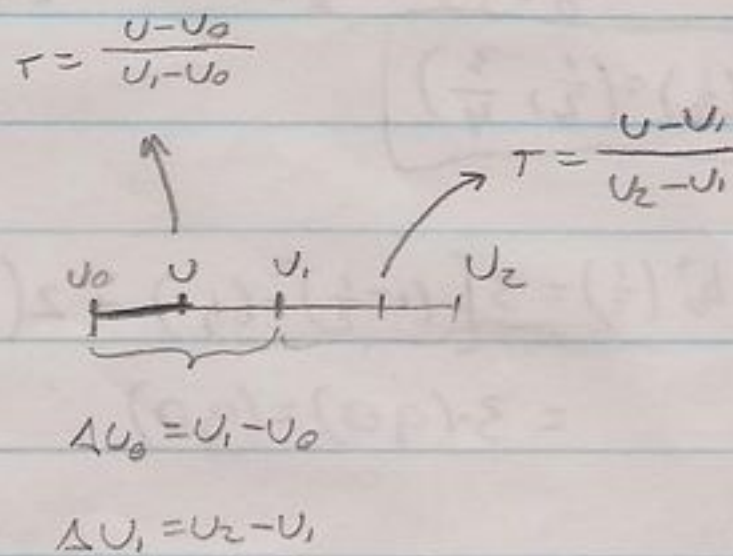 τ = (u-u₀)/(u₁-u₀)
τ = (u-u₁)/(u₂-u₁)
u₀ u u₁ u₂
Δu₀ = u₁-u₀
Δu₁ = u₂-u₁